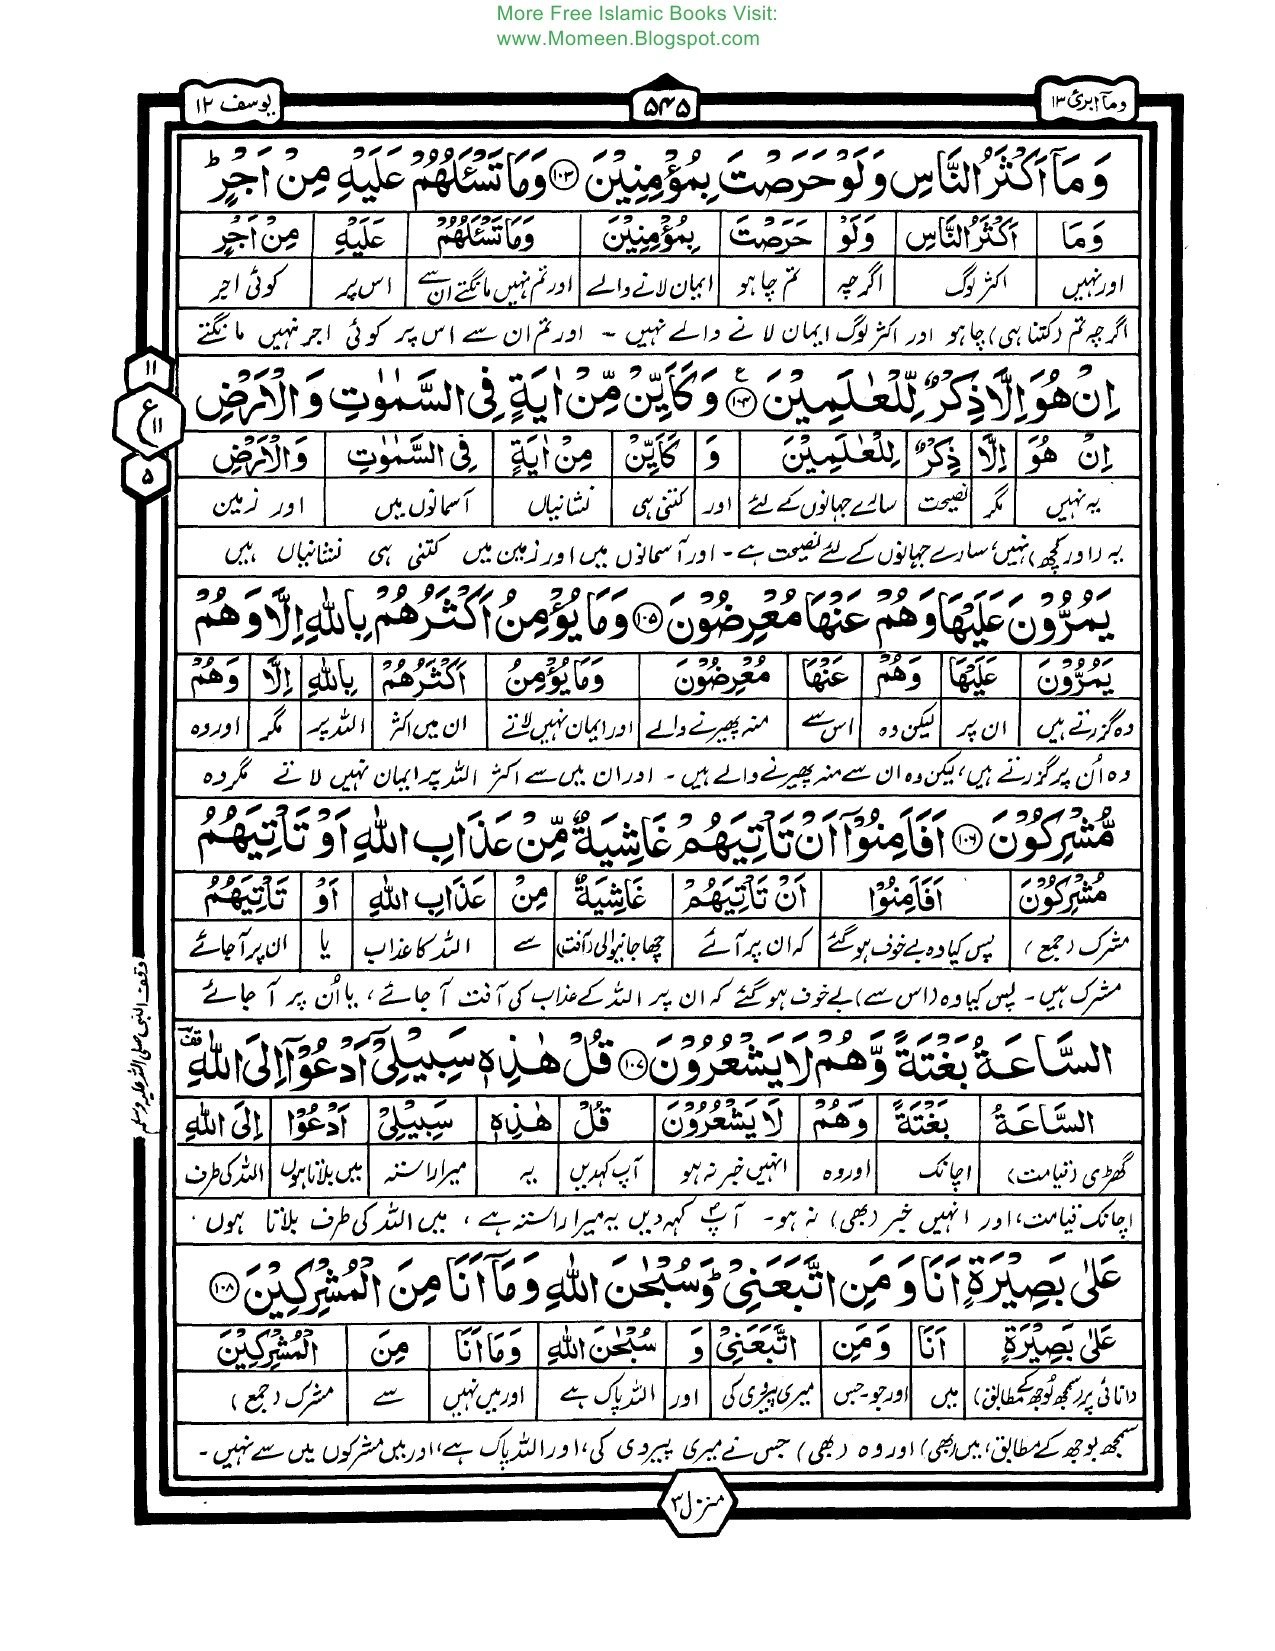 More Free Islamic Books Visit:
www.Momeen.Blogspot.com
ومآ ابرئ ۱۳
۵۴۵
یوسف ۱۲
وَمَآ اَكْثَرُ النَّاسِ وَلَوْ حَرَصْتَ بِمُؤْمِنِیْنَ ﴿۱۰۳﴾ وَمَا تَسْـَٔلُهُمْ عَلَیْهِ مِنْ اَجْرٍ ؕ
وَمَا اَكْثَرُ النَّاسِ وَلَوْ حَرَصْتَ بِمُؤْمِنِیْنَ وَمَا تَسْـَٔلُهُمْ عَلَیْهِ مِنْ اَجْرٍ
اور نہیں اکثر لوگ اگرچہ تم چاہو ایمان لانے والے اور تم نہیں مانگتے ان سے اس پر کوئی اجر
اگرچہ تم (کتنا ہی) چاہو اور اکثر لوگ ایمان لانے والے نہیں ۔ اور تم ان سے اس پر کوئی اجر نہیں مانگتے
اِنْ هُوَ اِلَّا ذِكْرٌ لِّلْعٰلَمِیْنَ ﴿۱۰۴﴾ ع وَكَاَیِّنْ مِّنْ اٰیَةٍ فِی السَّمٰوٰتِ وَالْاَرْضِ
۱۱
ع
۱۱
۵
اِنْ هُوَ اِلَّا ذِكْرٌ لِلْعٰلَمِیْنَ وَ كَاَیِّنْ مِنْ اٰیَةٍ فِی السَّمٰوٰتِ وَالْاَرْضِ
یہ نہیں مگر نصیحت سارے جہانوں کے لئے اور کتنی ہی نشانیاں آسمانوں میں اور زمین
یہ (اور کچھ) نہیں، سارے جہانوں کے لئے نصیحت ہے۔ اور آسمانوں میں اور زمین میں کتنی ہی نشانیاں ہیں
یَمُرُّوْنَ عَلَیْهَا وَهُمْ عَنْهَا مُعْرِضُوْنَ ﴿۱۰۵﴾ وَمَا یُؤْمِنُ اَكْثَرُهُمْ بِاللّٰهِ اِلَّا وَهُمْ
یَمُرُّوْنَ عَلَیْهَا وَهُمْ عَنْهَا مُعْرِضُوْنَ وَمَا یُؤْمِنُ اَكْثَرُهُمْ بِاللّٰهِ اِلَّا وَهُمْ
وہ گزرتے ہیں ان پر لیکن وہ اس سے منہ پھیرنے والے اور ایمان نہیں لاتے ان میں اکثر اللہ پر مگر اور وہ
وہ اُن پر گزرتے ہیں، لیکن وہ ان سے منہ پھیرنے والے ہیں ۔ اور ان میں سے اکثر اللہ پر ایمان نہیں لاتے مگر وہ
مُّشْرِكُوْنَ ﴿۱۰۶﴾ اَفَاَمِنُوْۤا اَنْ تَاْتِیَهُمْ غَاشِیَةٌ مِّنْ عَذَابِ اللّٰهِ اَوْ تَاْتِیَهُمُ
مُشْرِكُوْنَ اَفَاَمِنُوْا اَنْ تَاْتِیَهُمْ غَاشِیَةٌ مِنْ عَذَابِ اللّٰهِ اَوْ تَاْتِیَهُمُ
مشرک (جمع) پس کیا وہ بے خوف ہو گئے کہ ان پر آئے چھا جانیوالی (آفت) سے اللہ کا عذاب یا ان پر آ جائے
مشرک ہیں۔ پس کیا وہ (اس سے) بے خوف ہو گئے کہ ان پر اللہ کے عذاب کی آفت آ جائے، یا اُن پر آ جائے
السَّاعَةُ بَغْتَةً وَّهُمْ لَا یَشْعُرُوْنَ ﴿۱۰۷﴾ قُلْ هٰذِهٖ سَبِیْلِیْۤ اَدْعُوْۤا اِلَی اللّٰهِ ؔ قف
وقف النبی صلی اللہ علیہ وسلم
السَّاعَةُ بَغْتَةً وَهُمْ لَا یَشْعُرُوْنَ قُلْ هٰذِهٖ سَبِیْلِیْ اَدْعُوْا اِلَی اللّٰهِ
گھڑی (قیامت) اچانک اور وہ انہیں خبر نہ ہو آپ کہدیں یہ میرا راستہ میں بلاتا ہوں اللہ کی طرف
اچانک قیامت، اور انہیں خبر (بھی) نہ ہو۔ آپؐ کہہ دیں یہ میرا راستہ ہے، میں اللہ کی طرف بلاتا ہوں
عَلٰی بَصِیْرَةٍ اَنَا وَمَنِ اتَّبَعَنِیْ ؕ وَسُبْحٰنَ اللّٰهِ وَمَاۤ اَنَا مِنَ الْمُشْرِكِیْنَ ﴿۱۰۸﴾
عَلٰی بَصِیْرَةٍ اَنَا وَمَنِ اتَّبَعَنِیْ وَ سُبْحٰنَ اللّٰهِ وَمَا اَنَا مِنَ الْمُشْرِكِیْنَ
دانائی پر (سمجھ بوجھ کے مطابق) میں اور جو۔ جس میری پیروی کی اور اللہ پاک ہے اور میں نہیں سے مشرک (جمع)
سمجھ بوجھ کے مطابق، میں (بھی) اور وہ (بھی) جس نے میری پیروی کی، اور اللہ پاک ہے، اور میں مشرکوں میں سے نہیں۔
منزل ۳